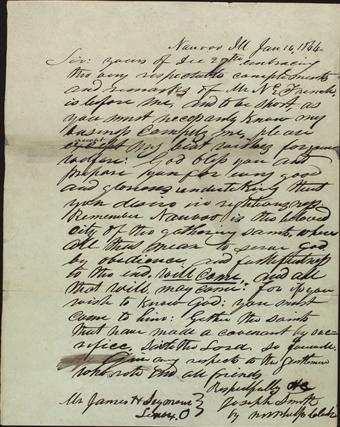 Nauvoo Ill Jan 16, 1844.
Sir: yours of Dec 29th embracing
the very respectable compliments
and remarks of Mr N. E. French,
is before me, and to be short, as
you must necessarily know my
business compels me, please
accept my best wishes for your
welfare: God bless you and
prepare you for every good
and glorious undertaking that
you desire in righteousness
Remember Nauvoo is the beloved
city of the gathering saints, where
all that mean to serve God
by obedience and faithfulness
to the end, will come, and all
that will, may come: for if you
wish to know God: you must
come to him: Gather the saints
that have made a covenant by sac-
rifice, saith the Lord. So farewell.
Give my respects to the gentlemen
who wrote and all friends
Respectfully &c
Mr James H Seymour Joseph Smith
O by W W Phelps Clerk